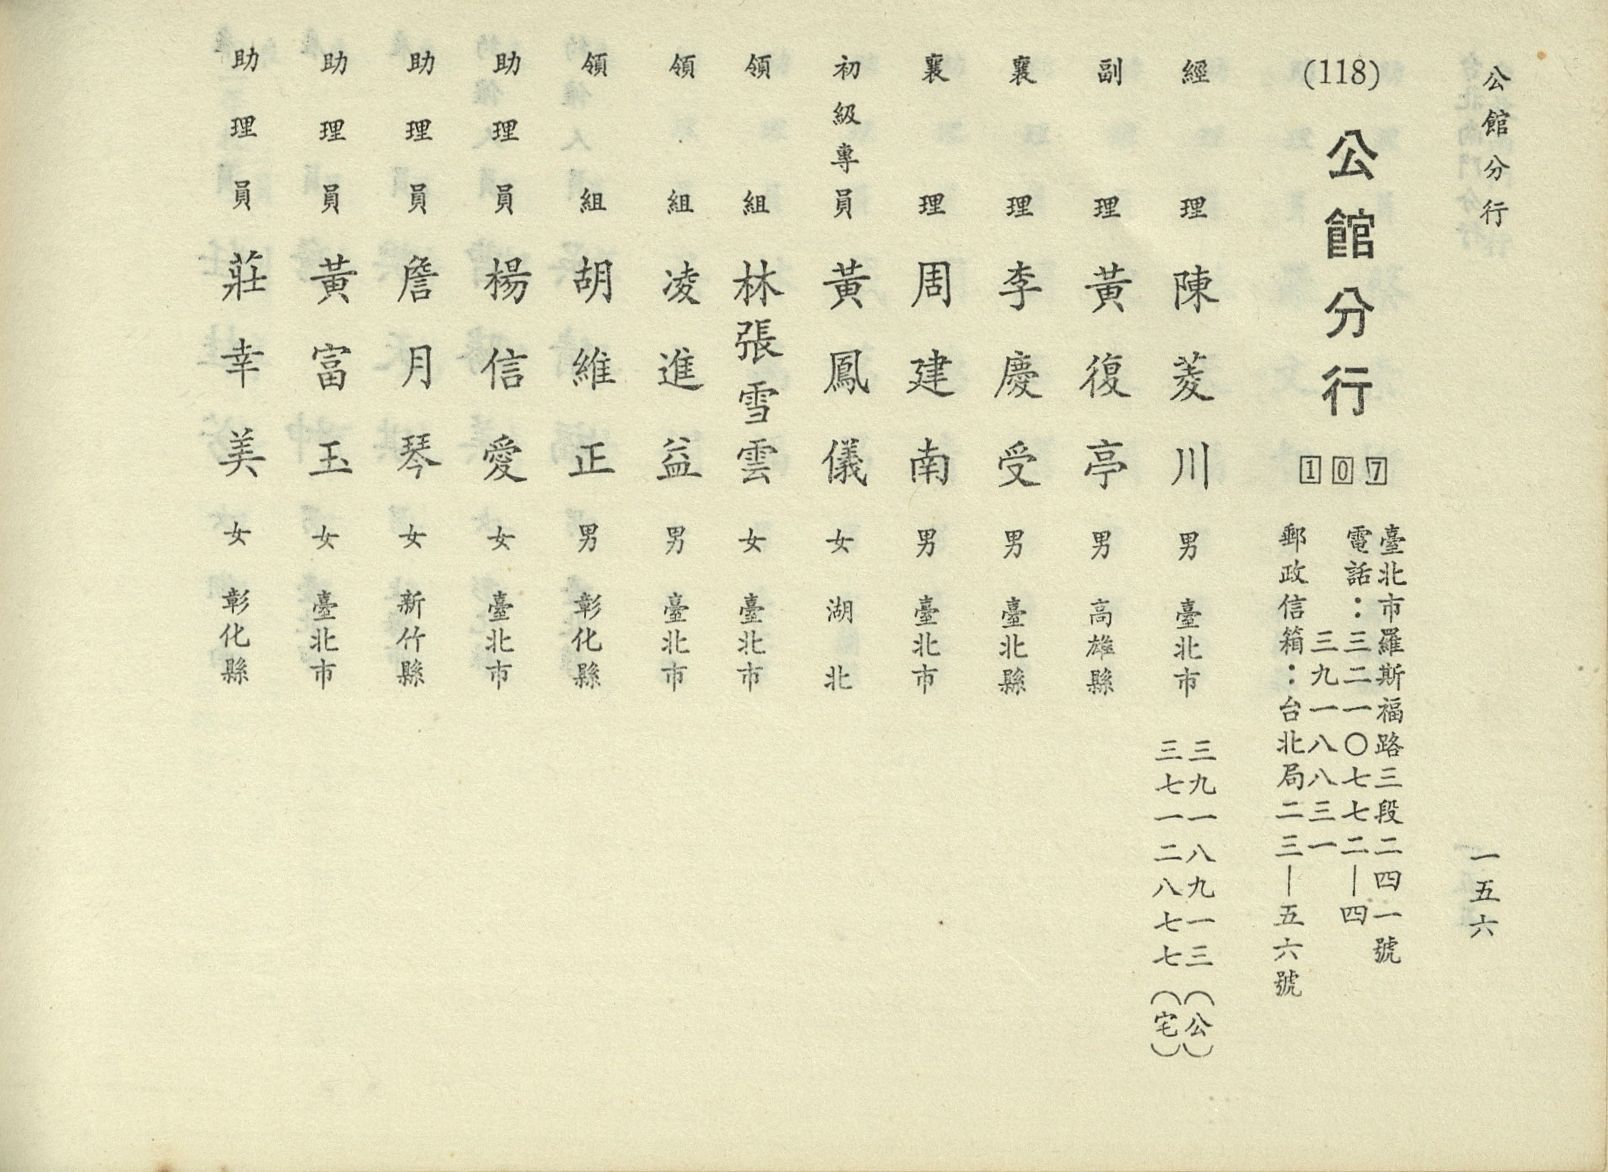 公館分行
一五六
(118)
公館分行
107
臺北市羅斯福路三段二四一號
電話：三二一〇七七二—四
三九一八八三一
郵政信箱：台北局二三—五六號
經理 陳菱川 男 臺北市 三九一八九一三（公）
三七一二八七七（宅）
副理 黃復亭 男 高雄縣
襄理 李慶受 男 臺北縣
襄理 周建南 男 臺北市
初級專員 黃鳳儀 女 湖北
領組 林張雪雲 女 臺北市
領組 凌進益 男 臺北市
領組 胡維正 男 彰化縣
助理員 楊信愛 女 臺北市
助理員 詹月琴 女 新竹縣
助理員 黃富玉 女 臺北市
助理員 莊幸美 女 彰化縣